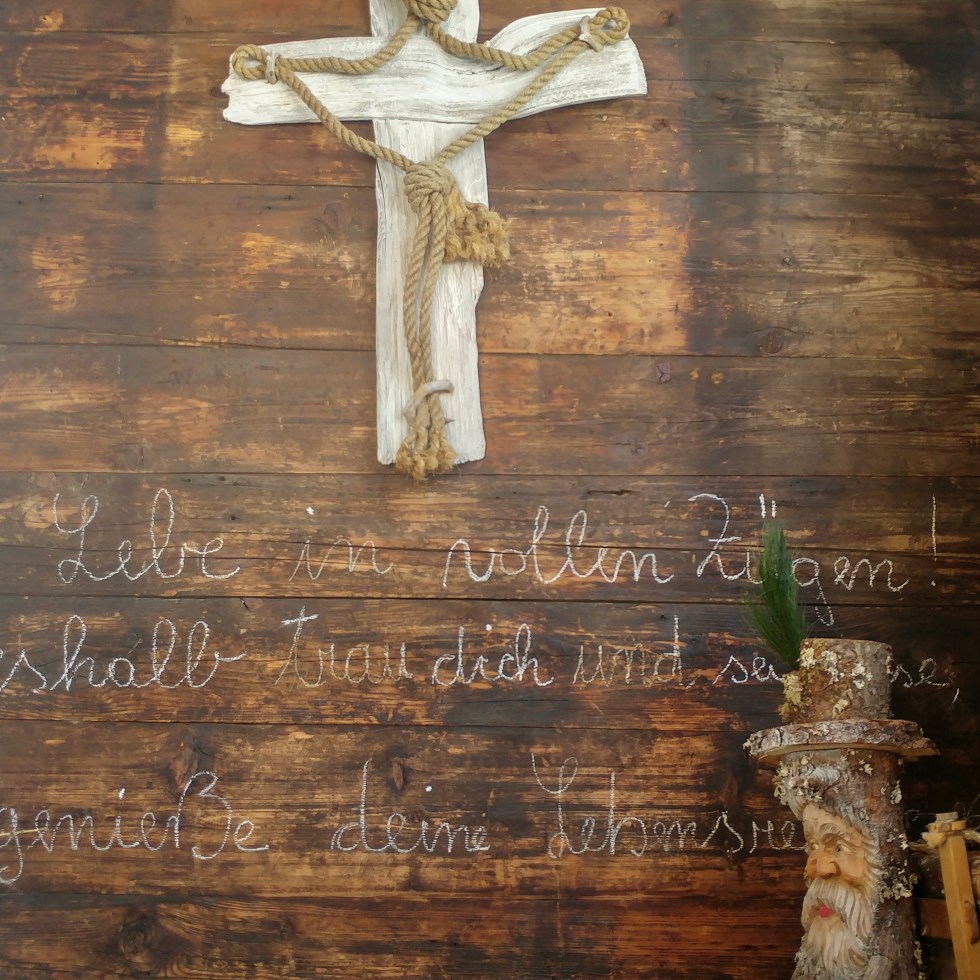 Lebe in vollen Zügen!
shalb trau dich und se se,
genieße deine Lebensre